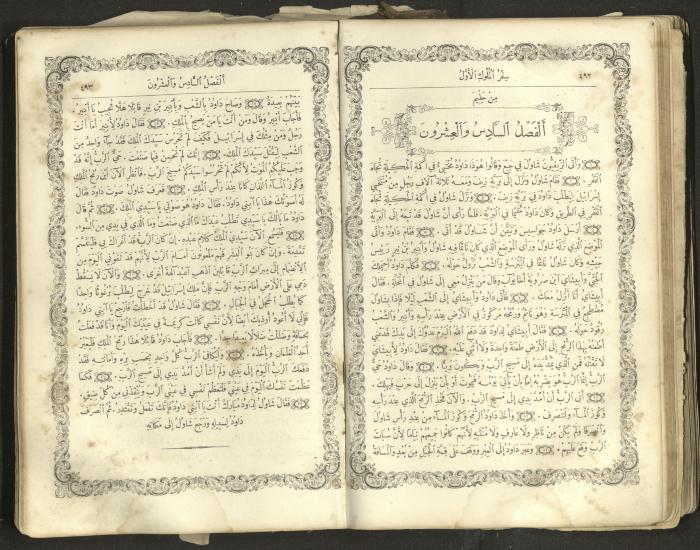 ٤٩٢ سفر الملوك الأول
مِن حليم
أَلْفَصْلُ السَّادِسُ وَالْعِشْرُونَ
وأتى الزيفيون شاول في جبع وقالوا هوذا داود مختبئ في أكمة الحكيلة تجاه
القفر. فقام شاول ونزل إلى برية زيف ومعه ثلاثة آلاف رجل من منتخبي
إسرائيل ليطلب داود في برية زيف. ونزل شاول في أكمة الحكيلة تجاه
القفر في الطريق وكان داود مقيما في البرية. فلما رأى أن شاول قد تبعه إلى البرية
أرسل داود جواسيس وتيقن أن شاول قد أتى. فقام داود وأتى
الموضع الذي نزله شاول ورأى الموضع الذي كان نائما فيه شاول وأبنير بن نير رئيس
جيشه وكان شاول نائما في المترسة والشعب نزول حوله. فكلم داود أحيملك
الحثي وأبيشاي ابن صروية أخا يوآب وقال من ينزل معي إلى شاول في المحلة. فقال
أبيشاي أنا أنزل معك. فأتى داود وأبيشاي إلى الشعب ليلا فإذا بشاول
مضطجع في المترسة وهو نائم ورمحه مركوز في الأرض عند رأسه وأبنير والشعب
رقود حوله. فقال أبيشاي لداود قد دفع الله اليوم عدوك إلى يدك فدعني
أطعنه بهذا الرمح إلى الأرض طعنة واحدة ولا أثني عليه. فقال داود لأبيشاي
لا تقتله فمن الذي يمد يده إلى مسيح الرب ويكون بريئا. وقال داود حي
الرب إنما الرب هو يضربه إما بأن يأتي يومه فيموت أو بأن ينزل إلى حرب فيهلك.
أبى الرب أن أمد يدي إلى مسيح الرب. والآن فخذ الرمح الذي عند رأسه
وكوز الماء وننصرف. وأخذ داود الرمح وكوز الماء من عند رأس شاول
وانصرفا ولم يكن من ناظر ولا عارف ولا منتبه لأنهم كانوا جميعهم نياما لأن سبات
الرب وقع عليهم. وعبر داود إلى العبر ووقف على قمة الجبل من بعد والمسافة
الفصل السادس والعشرون ٤٩٣
بينهم بعيدة. وصاح داود بالشعب وبأبنير بن نير قائلا هلا تجيب يا أبنير.
فأجاب أبنير وقال ومن أنت يا من تصيح بالملك. فقال داود لأبنير أما أنت
رجل ومن مثلك في إسرائيل فكيف لم تحرس سيدك الملك فقد جاء واحد من
الشعب ليقتل سيدك الملك. إنك لم تحسن فيما صنعت. حي الرب إنه قد
وجب عليكم الموت لأنكم لم تحرسوا سيدكم مسيح الرب. فانظر الآن أين رمح الملك
وكوز الماء اللذان كانا عند رأس الملك. فعرف شاول صوت داود فقال
له أصوتك هذا يا ابني داود. فقال داود هو صوتي يا سيدي الملك. ثم قال
داود ما بالك يا سيدي تطلب عبدك ما الذي صنعت وما الذي في يدي من السوء.
فليسمع الآن سيدي الملك كلام عبده. إن كان الرب قد أغراك بي فليشتم
تقدمة. وإن كان بنو البشر فهم ملعونون أمام الرب لأنهم قد نفوني اليوم من
الانضمام إلى ميراث الرب قائلين اذهب اعبد آلهة أخرى. والآن لا يسقط
دمي على الأرض أمام وجه الرب فإن ملك إسرائيل قد خرج ليطلب برغوثا واحدا
كما يطلب الحجل في الجبال. فقال شاول قد أخطأت فارجع يا ابني داود
فإني لا أعود أوذيك أيضا لأن نفسي كانت كريمة في عينيك اليوم وأنا قد فعلت
بحماقة وضللت ضلالا بعيدا جدا. فأجاب داود قائلا هذا رمح الملك فليعبر
أحد الغلمان ويأخذه. وليكافئ الرب كل واحد بحسب بره وأمانته فقد
دفعك الرب اليوم إلى يدي ولم أشأ أن أمد يدي إلى مسيح الرب. فكما
عظمت نفسك اليوم في عيني فلتعظم نفسي في عيني الرب ولينقذني من كل ضيق.
فقال شاول لداود مبارك أنت يا ابني داود فإنك تفعل وتقتدر. ثم انصرف
داود لسبيله ورجع شاول إلى مكانه